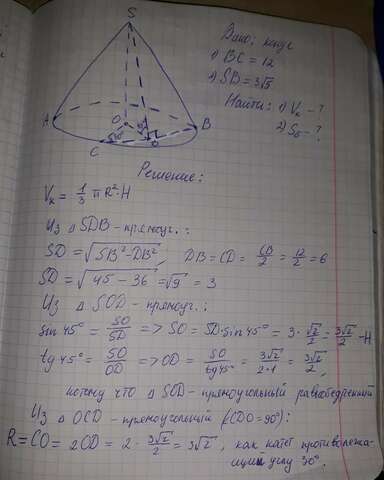 S
A
O
B
C
D
45°
30°
Дано: конус
1) BC = 12
2) SB = 3√5
Найти: 1) Vк - ?
2) Sб - ?
Решение:
Vк = 1/3 πR²·H
Из △SDB - прямоуг.:
SD = √(SB² - DB²), DB = CD = CB/2 = 12/2 = 6
SD = √(45 - 36) = √9 = 3
Из △SOD - прямоуг.:
sin 45° = SO/SD => SO = SD·sin 45° = 3·√2/2 = 3√2/2 - H
tg 45° = SO/OD => OD = SO/tg 45° = 3√2/2·1 = 3√2/2,
потому что △SOD - прямоугольный равнобедренный
Из △OCD - прямоугольный (∠CDO = 90°):
R = CO = 2OD = 2·3√2/2 = 3√2, как катет противолежа-
щий углу 30°.